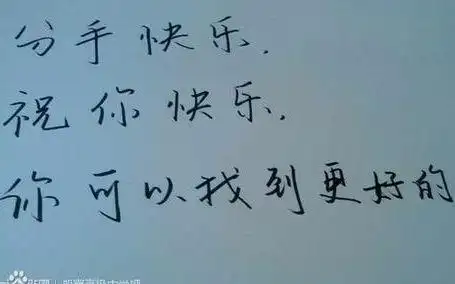 分手快乐.
祝你快乐.
你可以找到更好的